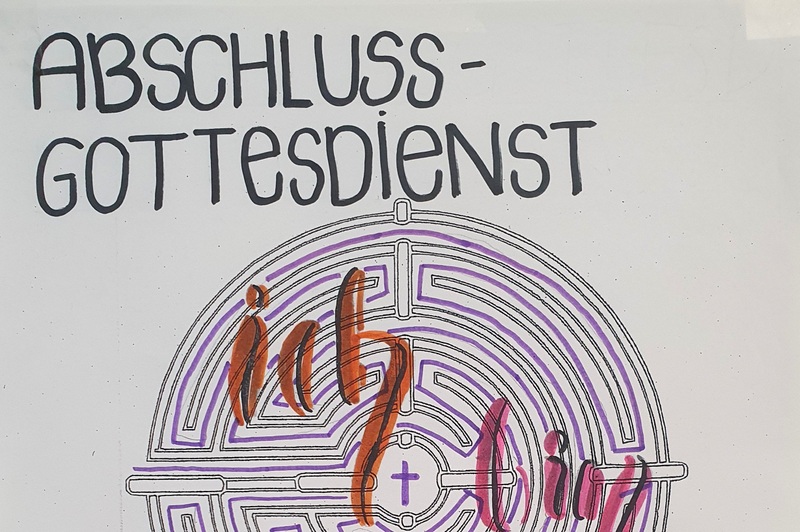 ABSCHLUSS-
GOTTesDieNST
ich
bin